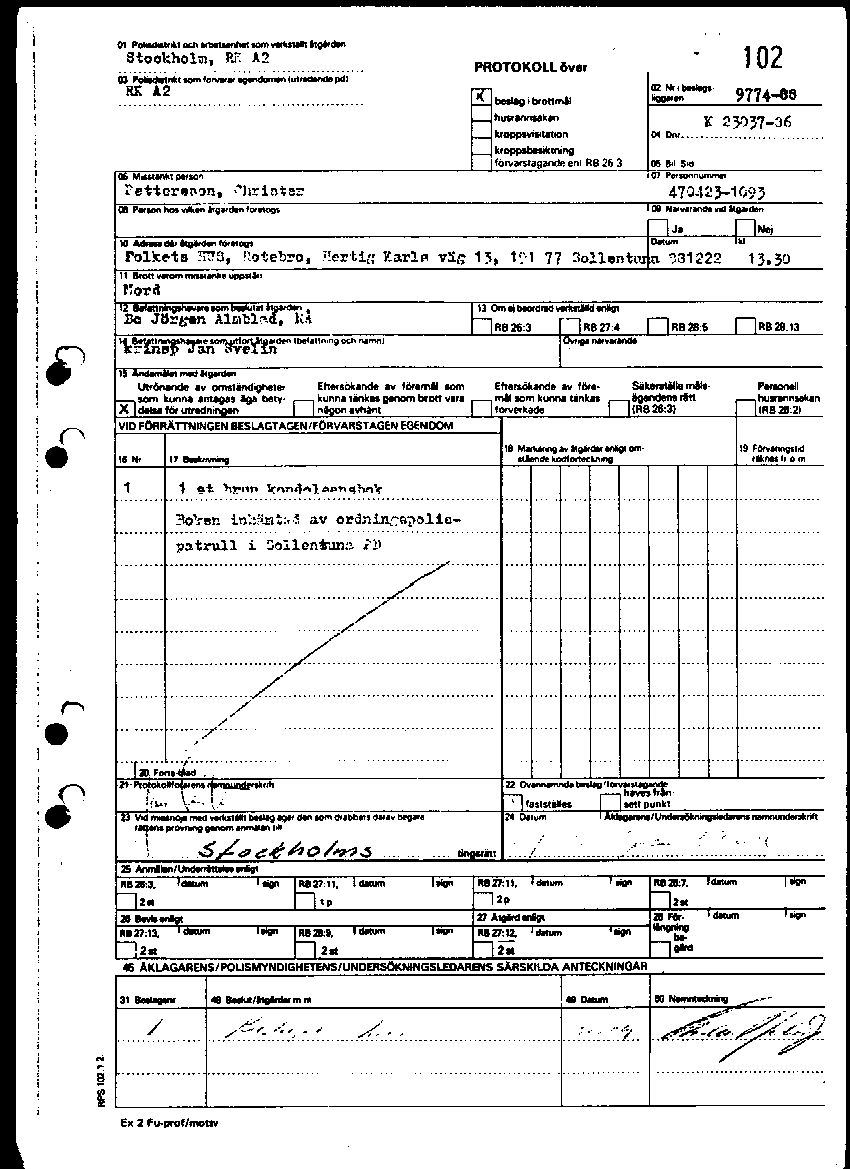 01 Polisdistrikt och arbetsenhet som verkställt åtgärden
Stockholm, RK A2
102
03 Polisdistrikt som förvarar egendomen (utredande pd)
RK A2
PROTOKOLL över
X beslag i brottmål
husrannsakan
kroppsvisitation
kroppsbesiktning
förvarstagande enl RB 26:3
02 Nr i beslags-
liggaren
9774-88
K 23037-86
04 Dnr
05 Bil Sid
06 Misstänkt person
Pettersson, Christer
07 Personnummer
470423-1093
08 Person hos vilken åtgärden företogs
09 Närvarande vid åtgärden
Ja Nej
10 Adress där åtgärden företogs
Datum
kl
Folkets Hus, Rotebro, Hertig Karls väg 13, 191 77 Sollentuna 881222 13.30
11 Brott varom misstanke uppstått
Mord
12 Befattningshavare som beslutat åtgärden
Bo Jörgen Almblad, KÅ
13 Om ej beordrad verkställd enligt
RB 26:3 RB 27:4 RB 28:5 RB 28.13
14 Befattningshavare som utfört åtgärden (befattning och namn)
Krinsp Jan Svelin
Övriga närvarande
15 Ändamålet med åtgärden
Utrönande av omständigheter
som kunna antagas äga bety-
X delse för utredningen
Eftersökande av föremål som
kunna tänkas genom brott vara
någon avhänt
Eftersökande av före-
mål som kunna tänkas
förverkade
Säkerställa måls-
ägandens rätt
(RB 26:3)
Personell
husrannsakan
(RB 28:2)
VID FÖRRÄTTNINGEN BESLAGTAGEN/FÖRVARSTAGEN EGENDOM
16 Nr
17 Beskrivning
18 Markering av åtgärder enligt om-
stående kodförteckning
19 Förvaringstid
räknas fr o m
1
1 st brun handelsenbok
Boken inhämtad av ordningspolis-
patrull i Sollentuna PD
20 Forts blad
21 Protokollförarens namnunderskrift
22 Ovannämnda beslag/förvarstagande
fastställes
häves från-
sett punkt
23 Vid missnöje med verkställt beslag äger den som drabbats därav begära
rättens prövning genom anmälan till
Stockholms tingsrätt
24 Datum
Åklagarens/Undersökningsledarens namnunderskrift
25 Anmälan/Underrättelse enligt
RB 26:3, datum sign
2 st
RB 27:11, datum sign
1 p
RB 27:11, datum sign
2 p
RB 28:7, datum sign
2 st
26 Bevis enligt
RB 27:13, datum sign
2 st
RB 28:9, datum sign
2 st
27 Åtgärd enligt
RB 27:12, datum sign
2 st
28 För-
längning
be-
gärd
datum sign
45 ÅKLAGARENS/POLISMYNDIGHETENS/UNDERSÖKNINGSLEDARENS SÄRSKILDA ANTECKNINGAR
31 Beslagsnr
48 Beslut/åtgärder m m
49 Datum
50 Namnteckning
1
RPS 102.1 2
Ex 2 Fu-prof/motiv